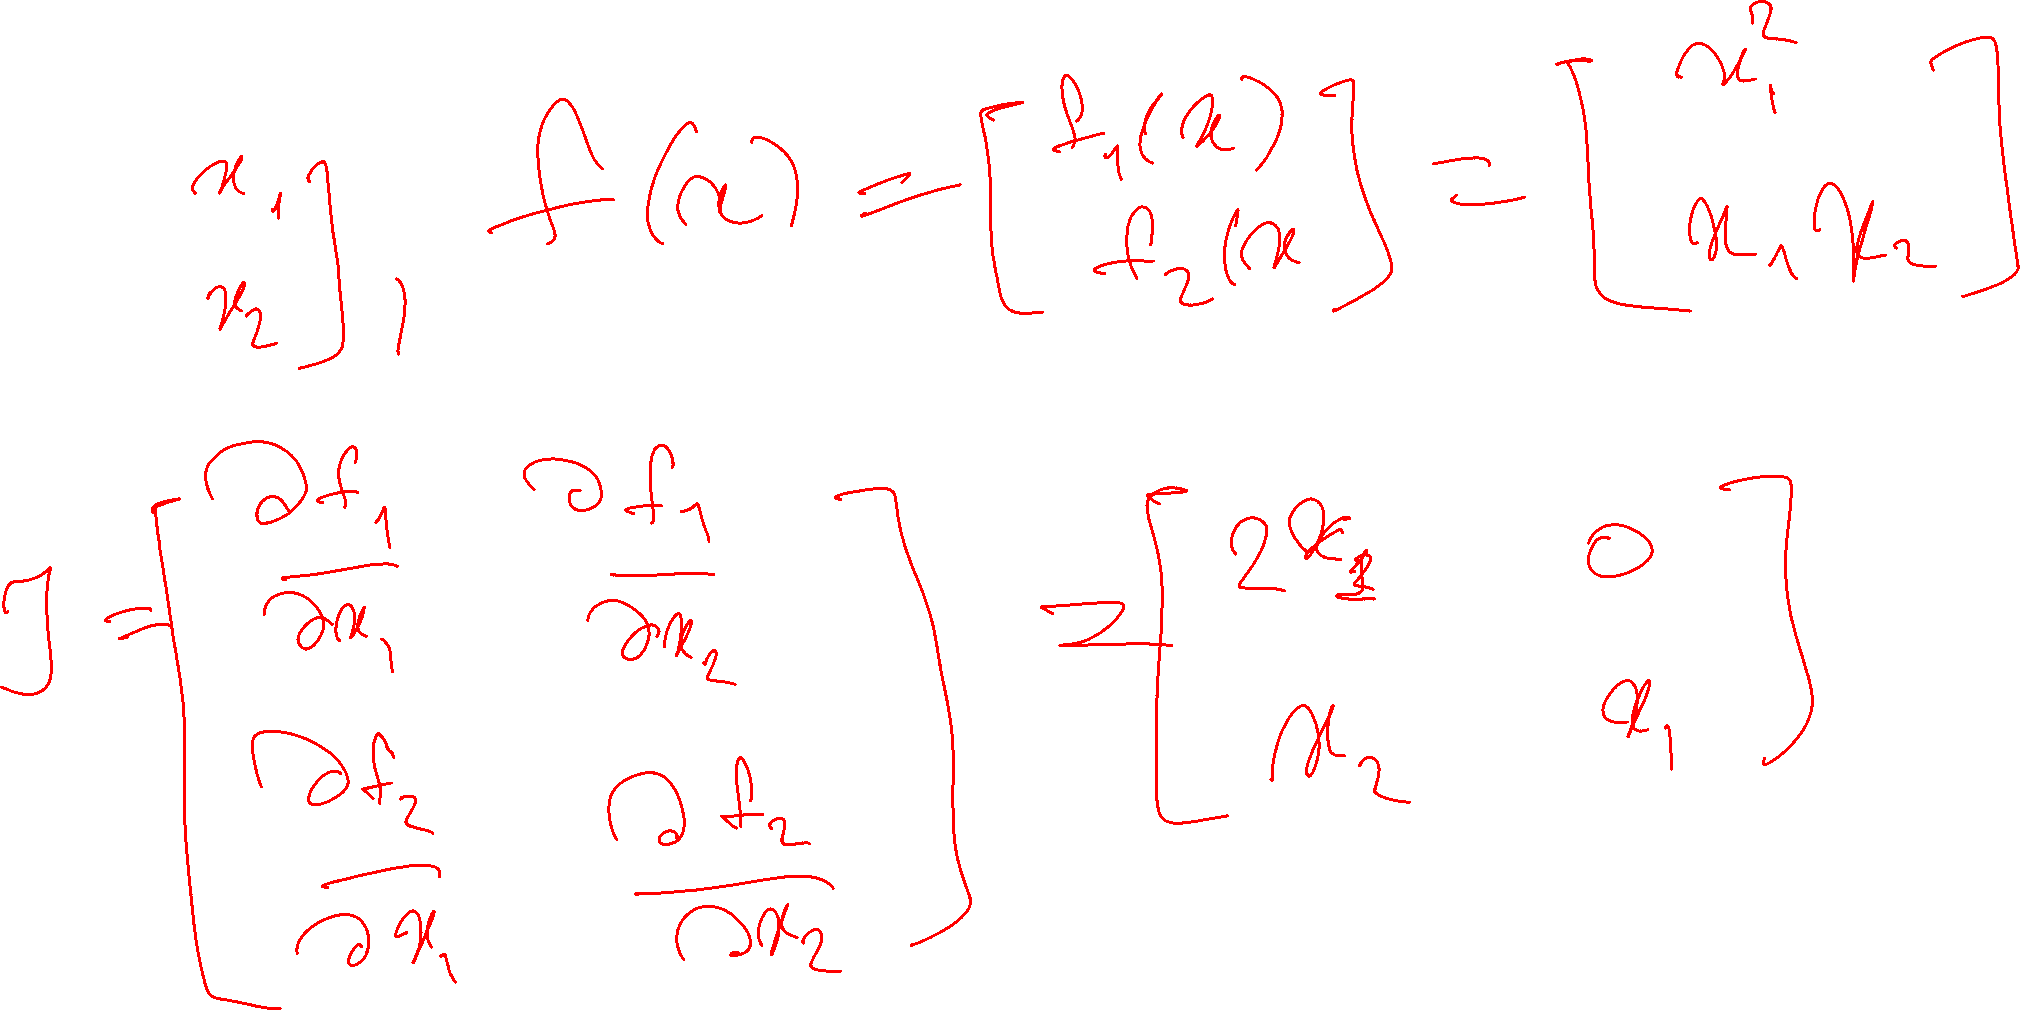 x₁ x₂ ], f(x) = [ f₁(x) f₂(x ] = [ x₁² x₁x₂ ]
J = [ ∂f₁/∂x₁ ∂f₁/∂x₂ ∂f₂/∂x₁ ∂f₂/∂x₂ ] = [ 2x₁ 0 x₂ x₁ ]